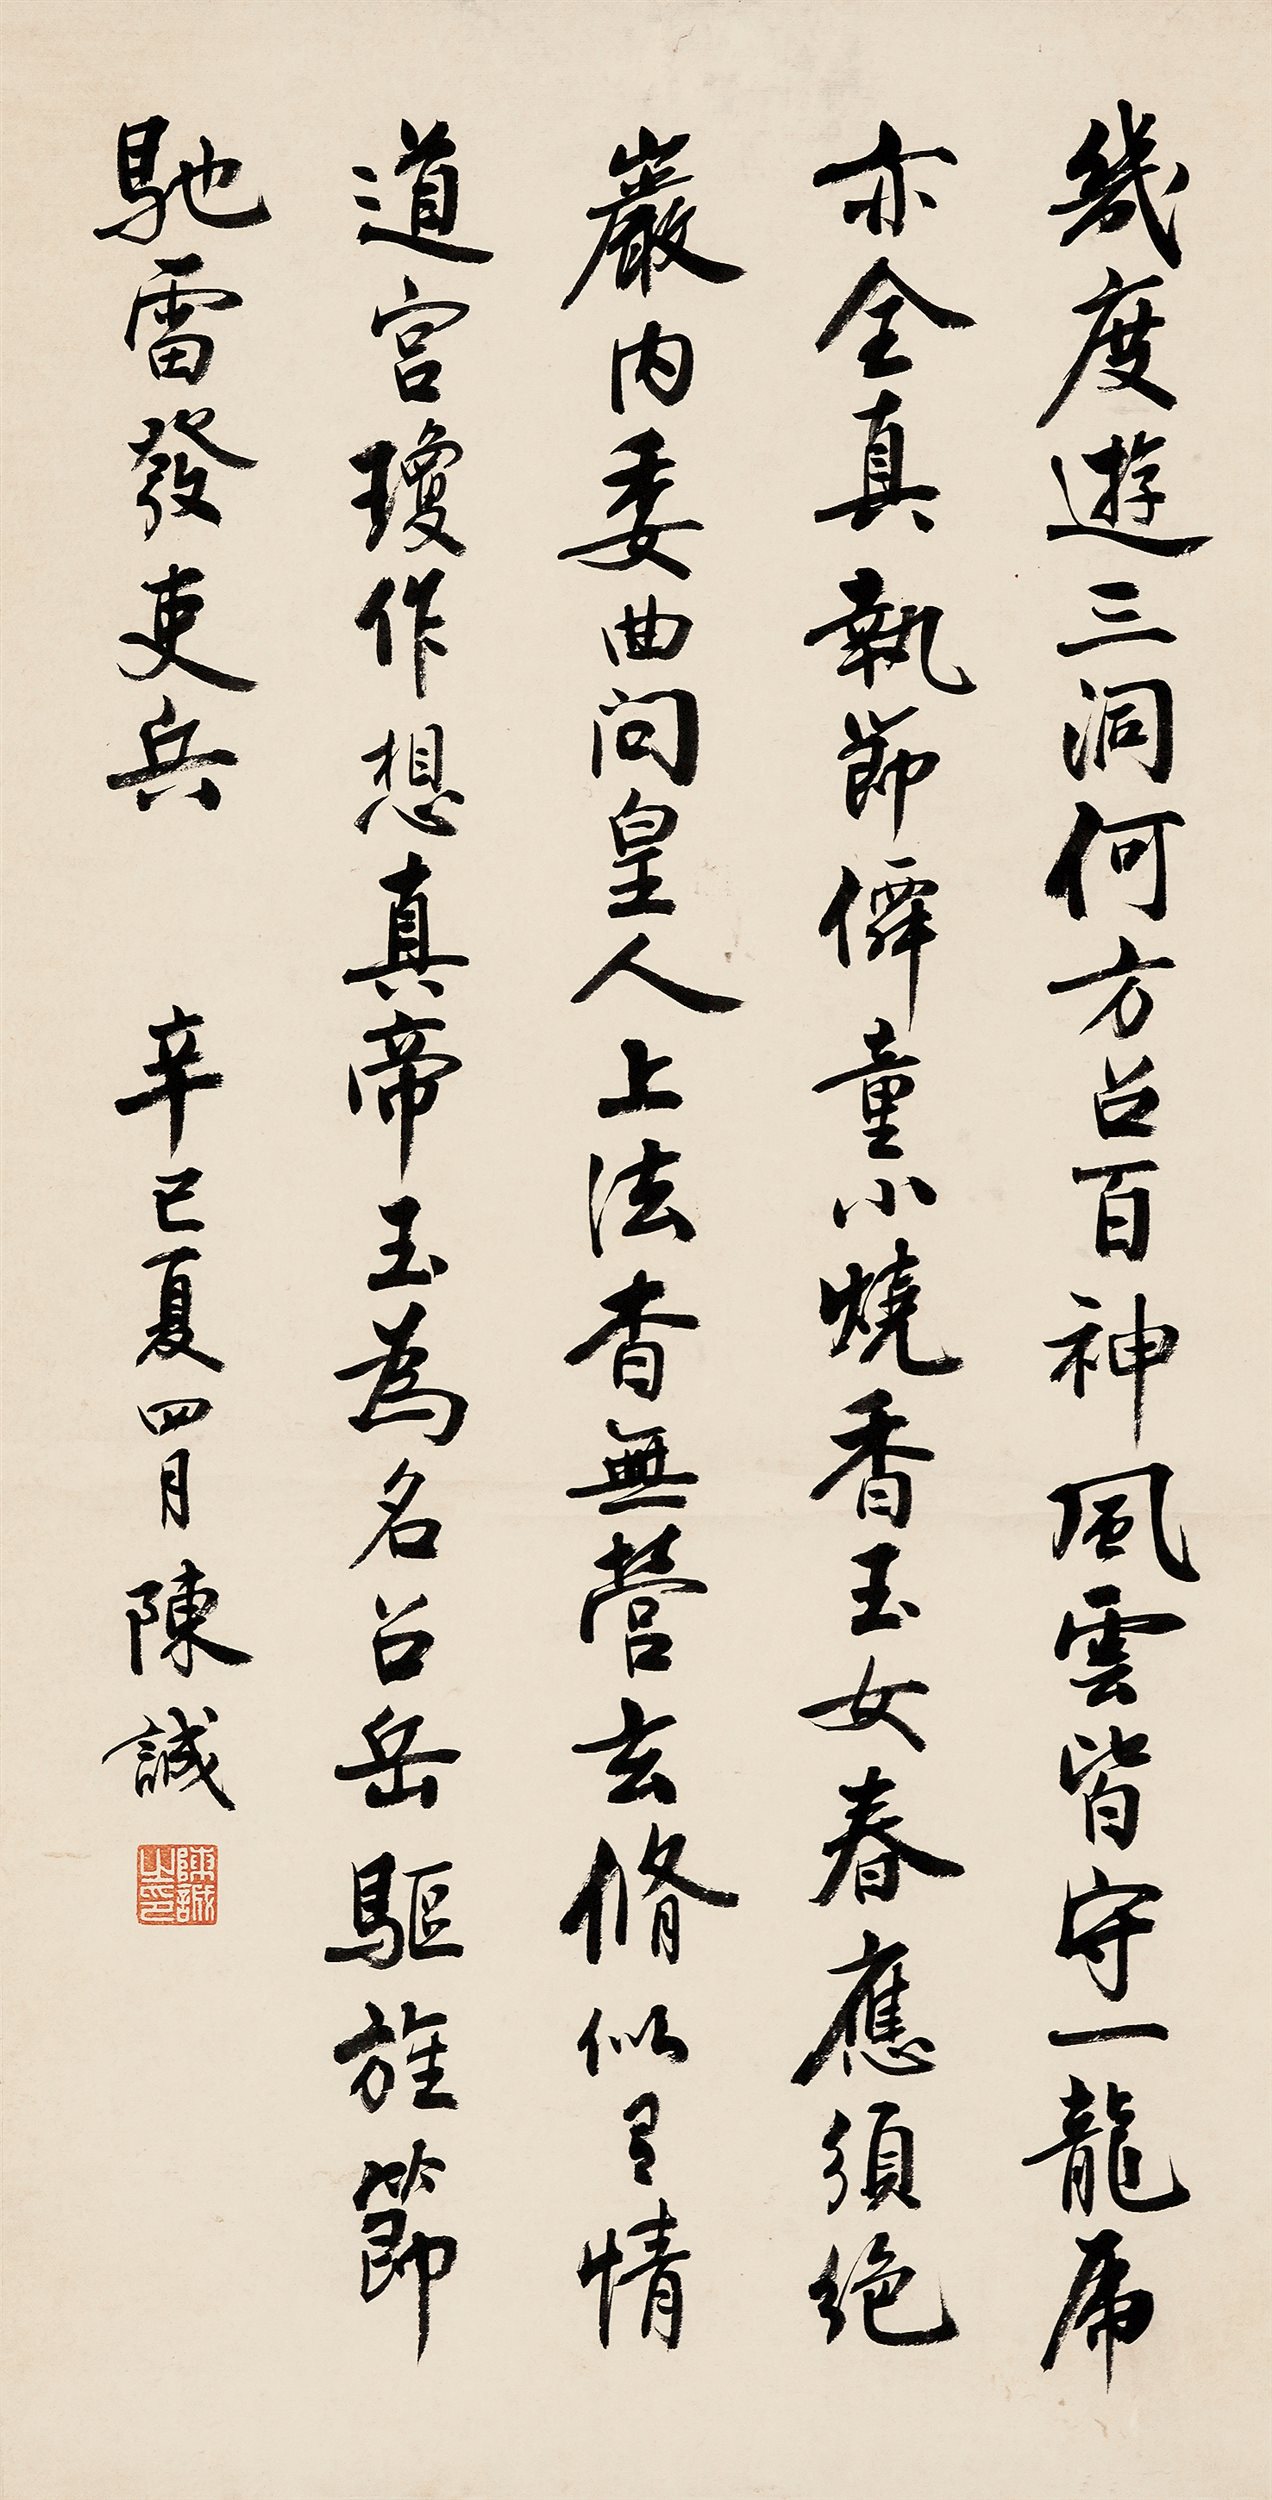 幾度遊三洞何方召百神風雲皆守一龍虎
亦全真執節僊童小燒香玉女春應須絕
巖内委曲問皇人上法杳無營玄脩似有情
道宮瓊作想真帝玉為名召岳驅旌節
馳雷發吏兵 辛巳夏四月 陳誠
陳誠之印